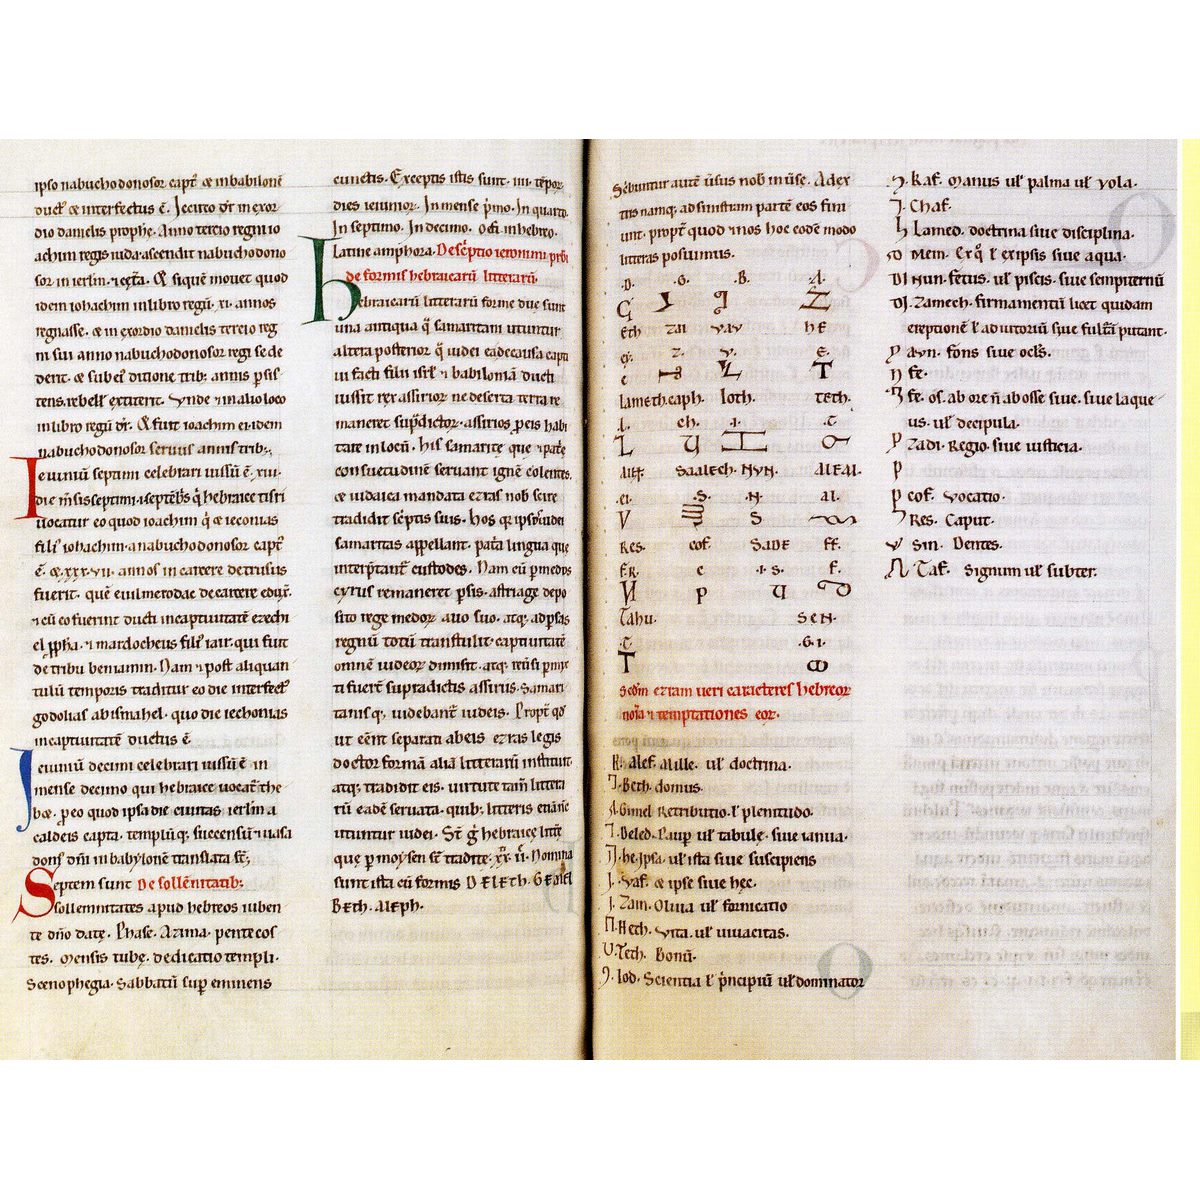 ipso nabuchodonosor capt' & inbabilonē
duct' & interfectus ē. Secuto qr inexor
dio danielis prophe. Anno tercio regni io
achim regis iuda ascendit nabuchodono
sor in ierlm
idem iohachim inlibro regū. xi. annos
regnasse. & in exordio danielis tercio reg
ni sui anno nabuchodonosor regi se de
dent. & sub ei' ditione trib; annis psis
tens. rebell' extiterit. Unde & in alio loco
inlibro regū qr. & fuit ioachim eidem
nabuchodonosor seruus annis trib;.
Ieiuniū septimi celebrari iussū ē. xiii.
die m̄sis septimi
uocatur eo quod ioachim q' & ieconias
fili' iohachim a nabuchodonosor capt'
ē. & xxx.vii. annos in carcere detrusus
fuerit. quē euilmerodac de carcere
& cū eo fuerint ducti incaptiuitatē ezechi
el ppha. & mardocheus fili' iair. qui fuit
de tribu beniamin. Nam & post aliquan
tulū temporis traditur eo die interfect'
godolias abismahel. quo die iechonias
incaptiuitatē ductus ē.
Ieiuniū decimi celebrari iussū ē in
mense decimo qui hebraice uocat' the
beth. peo quod ipsa die ciuitas ierlm a
caldeis capta. templūq; succensū & uasa
dom' dn̄i in babylonē translata st̄;
Septem sunt De sollēnitatib;
sollemnitates apud hebreos iuben
te dn̄o datę. Phase. Azima. pentecos
tes. Mensis tubę. dedicatio templi.
Scenophegia. Sabbatū sup eminens
cunctis. Exceptis istis sunt. iiii. tēpor
dies ieiunior. In mense p'mo. In quarto.
In septimo. In decimo.
latine amphora. Descptio ieronimi prbi
de formis hebraearū litterarū.
Hebraicarū litterarū forme due sunt
una antiqua q̄ samaritani utuntur
altera posterior q̄ iudei eadecausa capti
ui facti filii isrl' & babiloniā ducti
iussit rex assirior ne deserta terra re
maneret supdictor. assirios p eis habi
tare in locū. his samarite
consuetudinē seruant ignē colentes.
& iudaica mandata ezras nob scire
tradidit scptis suis. Hos
samaritas appellant. patia lingua que
interptant' custodes. Nam eū p medos
cyrus remaneret psis. astriage depo
sito rege medor auo suo. atq; adpsas
regnū totū transtulit. captiuitatē
omnē iudeor dimisit. atq;
ti fuerē supradictis assiriis. Samari
tanisq; uidebant' iudeis. Propt' qd
ut eēnt separati abeis ezras legis
doctor formā aliā litterarū instituit
atq; tradidit eis. uirtute tam̄ littera
rū eadē seruata. quib; litteris
utuntur iudei. St̄ g' hebraice litte
quę p moysen st̄ tradite. xx.ii. Nomina
sunt ista cū formis DELETH. GEMEL
BETH. ALEPH.
Scribuntur autē uersus nob inuerse. A dex
tris namq; ad sinistram partē eos fini
unt. propt' quod & nos hoc eodē modo
litteras posuimus.
.D. .G. .B. .A.
ETH ZAI VAV HE
Z. V. E.
LAMETH. CAPH. IOTH. TETH.
L. CH. .I. .T.
AIN SAMECH. NUN. MEM.
.S. .N.
RES. COF. SADE FF.
F.R. C .I.S. F.
TAHU. SEN.
.T. .GI.
Scōm ezram ueri caracteres hebreor
nota & temptationes eor.
Alef. Mille. ul' doctrina.
Beth. domus.
Gimel Retributio. l' plenitudo.
Deled. Paup ul' tabulę. siue ianua.
he. Ipsa. ul' ista siue suscipiens
Vaf. & ipse siue hęc.
Zain. Oliua ul' fornicatio
Heth. Vita. ul' uiuacitas.
Teth. Bonū.
Iod. Scientia l' principiū ul' dominator
Kaf. Manus ul' palma ul' vola.
Chaf.
Lamed. doctrina siue disciplina.
Mem. Ex q̄ l' exipsis siue aqua.
Nun. fetus. ul' piscis. siue sempiternū
Zamech. firmamentū licet quidam
ereptionē l' adiutoriū siue fulcim̄ putant.
Ayn. fons siue ocls.
Fe.
fe. os. ab ore n̄ ab osse siue. siue laque
us. ul' decipula.
Zadi. Regio. siue iusticia.
cof. Vocatio.
Res. Caput.
Sin. Dentes.
Taf. Signum ul' subter.